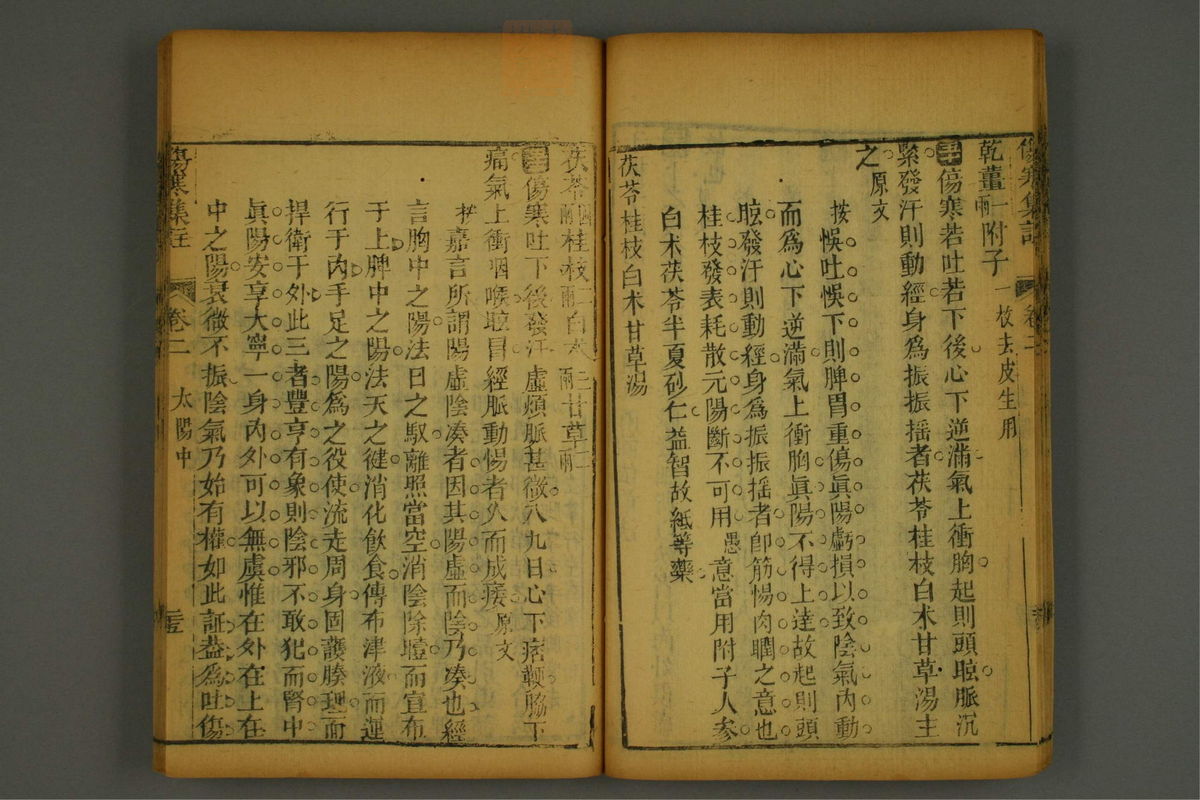 傷寒集註
卷二
乾薑一兩附子一枚去皮生用
傷寒若吐若下後心下逆滿氣上衝胸起則頭眩脈沉
緊發汗則動經身爲振振搖者茯苓桂枝白朮甘草湯主
之原文
按悞吐悞下則脾胃重傷眞陽虧損以致陰氣內動
而爲心下逆滿氣上衝胸眞陽不得上達故起則頭
眩發汗則動經身爲振振搖者卽筋惕肉瞤之意也
桂枝發表耗散元陽斷不可用愚意當用附子人參
白朮茯苓半夏砂仁益智故紙等藥
茯苓桂枝白朮甘草湯
茯苓四兩桂枝三兩白朮二兩甘草二兩
傷寒吐下後發汗虛煩脈甚微八九日心下痞鞕脇下
痛氣上衝咽喉眩冒經脈動惕者久而成痿原文
按嘉言所謂陽虛陰凑者因其陽虛而陰乃凑也經
言胸中之陽法日之馭離照當空消陰除曀而宣布
于上脾中之陽法天之健消化飲食傳布津液而運
行于內手足之陽爲之役使流走周身固護腠理而
捍衛于外此三者豐亨有象則陰邪不敢犯而腎中
眞陽安享大寧一身內外可以無虞惟在外在上在
中之陽衰微不振陰氣乃始有權如此証盡爲吐傷
傷寒集註
卷二
太陽中